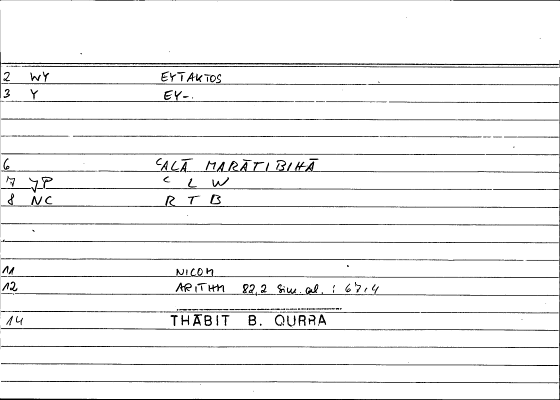 2 WY EYTAKTOS
3 Y EY-.
6 ʿALĀ MARĀTIBIHĀ
7 YP ʿ L W
8 NC R T B
11 NICOM
12 ARITHM 82,2 Sim. al. : 67,4
14 THĀBIT B. QURRA